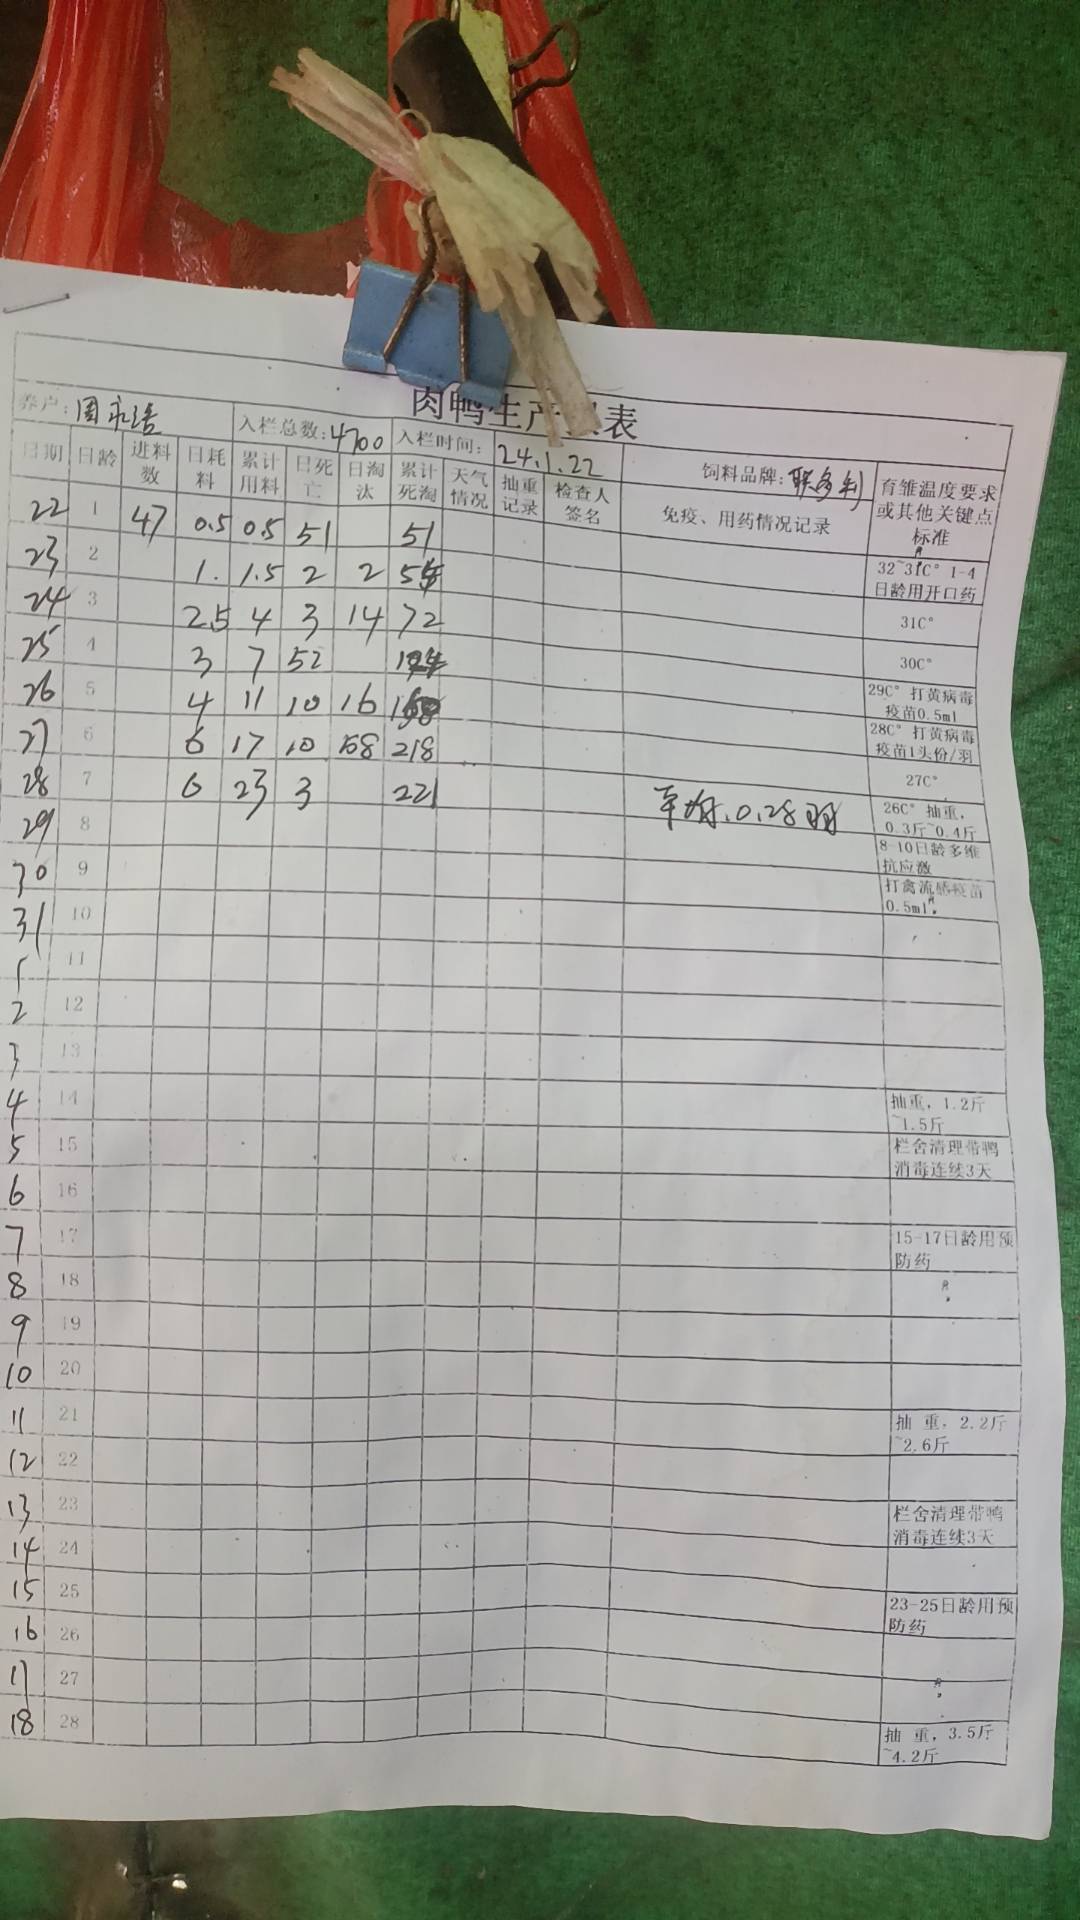 肉鸭生产 表
养户: 周 入栏总数: 4700 入栏时间: 24.1.22 饲料品牌: 联多利 育雏温度要求或其他关键点标准
日期 日龄 进料数 日耗料 累计用料 日死亡 日淘汰 累计死淘 天气情况 抽重记录 检查人签名 免疫、用药情况记录
22 1 47 0.5 0.5 51 51
23 2 1. 1.5 2 2 55 32~31C° 1-4日龄用开口药
24 3 2.5 4 3 14 72 31C°
25 4 3 7 52 30C°
26 5 4 11 10 16 29C° 打黄病毒疫苗0.5ml
27 6 6 17 10 58 218 28C° 打黄病毒疫苗1头份/羽
28 7 6 23 3 221 27C°
29 8 平均.0.28羽 26C° 抽重,0.3斤~0.4斤
30 9 8-10日龄多维抗应激
31 10 打禽流感疫苗0.5ml
1 11
2 12
3 13
4 14 抽重, 1.2斤~1.5斤
5 15 栏舍清理带鸭消毒连续3天
6 16
7 17 15-17日龄用预防药
8 18
9 19
10 20
11 21 抽 重, 2.2斤~2.6斤
12 22
13 23 栏舍清理带鸭消毒连续3天
14 24
15 25 23-25日龄用预防药
16 26
17 27
18 28 抽 重, 3.5斤~4.2斤